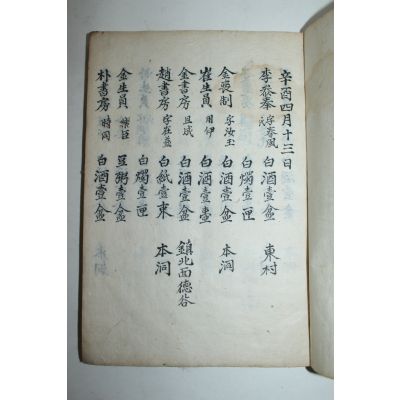 辛酉四月十三日
李發奉 字春風 白酒壹盆 東村
白燭壹匣
金喪制 字汝玉 白酒壹盆 本洞
崔生員 用伊 白酒壹壺
金書房 且斌 白酒壹盆 鎭北面德谷
趙書房 字在益 白紙壹束 本洞
金生員 樂臣 白燭壹匣
豆粥壹盆
朴書房 時同 白酒壹盆